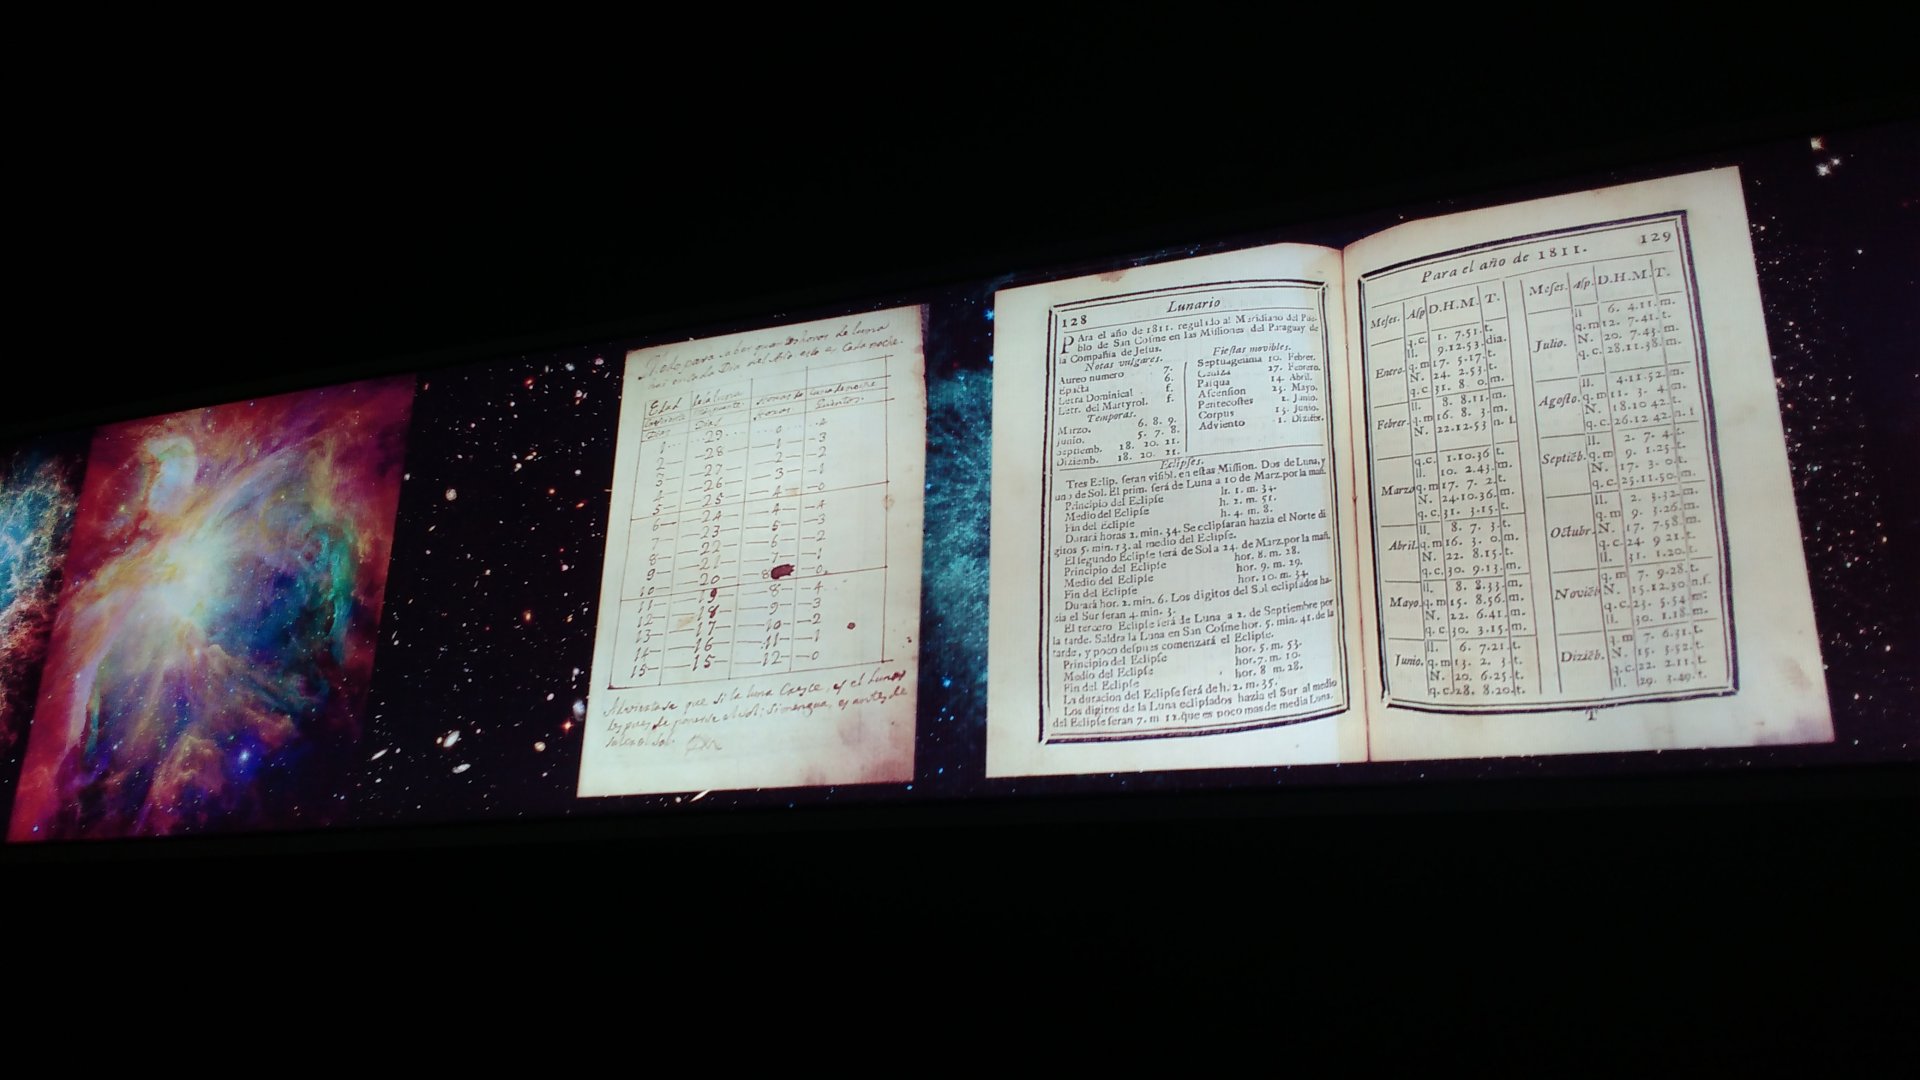 Modo para saber quantas horas de luna
hai en cada Dia del Año esto es Cada noche.
Edad de la Luna Horas de Luna de noche
Creciente Menguante Horas Quintos.
Dias Dias
1 29 0 4
2 28 1 3
3 27 2 2
4 26 3 1
5 25 4 0
6 24 4 4
7 23 5 3
8 22 6 2
9 21 7 1
10 20 8 0
11 19 8 4
12 18 9 3
13 17 10 2
14 16 11 1
15 15 12 0
Adviertase que si la luna Crece, es el Lunar
despues de ponerse el sol: si mengua, es antes de
salir el sol.
128 Lunario
PAra el año de 1811. regulado al Meridiano del Pue-
blo de San Cosme en las Missiones del Paraguay de
la Compañia de Jesus.
Notas vulgares.
Aureo numero 7.
Epacta 6.
Letra Dominical f.
Letr. del Martyrol. f.
Temporas.
Marzo. 6. 8. 9.
Junio. 5. 7. 8.
Septiemb. 18. 20. 21.
Diziemb. 18. 20. 21.
Fiestas movibles.
Septuagesima 10. Febrer.
Ceniza 27. Febrero.
Pasqua 14. Abril.
Ascension 23. Mayo.
Pentecostes 2. Junio.
Corpus 13. Junio.
Adviento 1. Diziēb.
Eclipses.
Tres Eclip. seran visibl. en estas Mission. Dos de Luna, y
uno de Sol. El prim. será de Luna a 10 de Marz. por la mañ.
Principio del Eclipse h. 1. m. 34.
Medio del Eclipse h. 2. m. 51.
Fin del Eclipse h. 4. m. 8.
Durará horas 2. min. 34. Se eclipsaran hazia el Norte di
gitos 5. min. 13. al medio del Eclipse.
El segundo Eclipse será de Sol a 24. de Marz. por la mañ.
Principio del Eclipse hor. 8. m. 28.
Medio del Eclipse hor. 9. m. 29.
Fin del Eclipse hor. 10. m. 34.
Durará hor. 2. min. 6. Los digitos del Sol eclipsados ha-
zia el Sur seran 4. min. 3.
El tercero Eclipse será de Luna a 2. de Septiembre por
la tarde. Saldra la Luna en San Cosme hor. 5. min. 41. de la
tarde, y poco despues comenzará el Eclipse.
Principio del Eclipse hor. 5. m. 53.
Medio del Eclipse hor. 7. m. 10.
Fin del Eclipse hor. 8 m. 28.
La duracion del Eclipse será de h. 2. m. 35.
Los digitos de la Luna eclipsados hazia el Sur al medio
del Eclipse seran 7. m 12. que es poco mas de media Luna.
Para el año de 1811. 129
Meses. Asp D.H.M. T.
q.c. 1. 7.51. t.
ll. 9.12.53. dia.
Enero q.m 17. 5.17. t.
N. 24. 2.53. t.
q.c 31. 8. 0. m.
ll. 8. 8.11. m.
Febrer. q.m 16. 8. 3. m.
N. 22.12.53 n. f.
q.c. 1.10.36 t.
ll. 10. 2.43. m.
Marzo q.m 17. 7. 2. t.
N. 24.10.36. m.
q.c. 31. 3.15. t.
ll. 8. 7. 3. t.
Abril. q.m 16. 3. 0. m.
N. 22. 8.15. t.
q.c. 30. 9.13. m.
ll. 8. 8.33. m.
Mayo. q.m 15. 8.56. m.
N. 22. 6.41. m.
q.c. 30. 3.15. m.
ll. 6. 7.21. t.
Junio. q.m 13. 2. 3. t.
N. 20. 6.25. t.
q.c. 28. 8.20. t.
Meses. Asp. D.H.M. T.
ll 6. 4.11. m.
q.m 12. 7.41. t.
Julio. N. 20. 7.43. m.
q.c. 28.11.38. m.
ll. 4.11.52. m.
Agosto. q.m 11. 3. 4. m.
N. 18.10 42. t.
q.c. 26.12 42. n. f
ll. 2. 7. 4. t.
Septiēb. q.m 9. 1.25. t.
N. 17. 3. 0. t.
q.c. 25.11.50. m.
ll. 2. 3.32. m.
q.m 9. 3.26. m.
Octubr. N. 17. 7.58. m.
q.c. 24. 9 21. t.
ll. 31. 1.20. t.
q.m 7. 9.28. t.
Noviēb N. 15.12.30. n.f.
q.c. 23. 5.54 m.
ll. 30. 1.18. m.
q.m 7. 6.31. t.
Diziēb. N. 15. 3.52. t.
q.c. 22. 2.11. t.
ll. 29. 3.49. t.
T